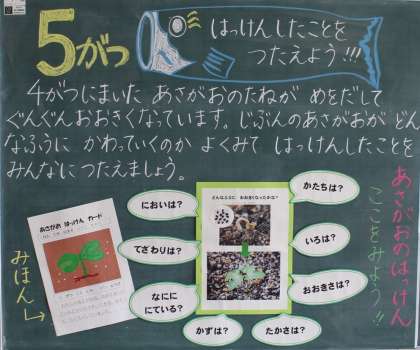 5がつ
はっけんしたことを
つたえよう!!!
4がつにまいた あさがおのたねが めをだして
ぐんぐんおおきくなっています。じぶんのあさがおが どん
なふうに かわっていくのか よくみて はっけんしたことを
みんなにつたえましょう。
あさがおのはっけん
ここをみよう!!
みほん
あさがお はっけん カード
どんなふうに おおきくなったかな?
においは?
てざわりは?
なにに
にている?
かずは?
たかさは?
おおきさは?
いろは?
かたちは?